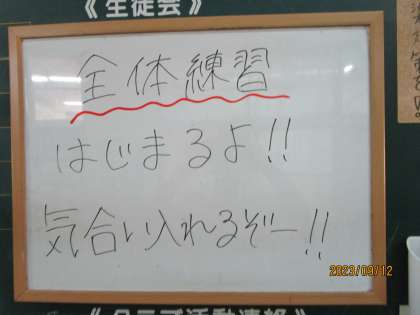 《生徒会》
全体練習
はじまるよ!!
気合い入れるぞー!!
2023/09/12